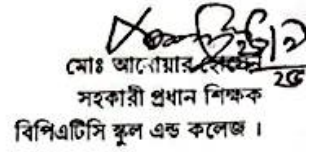 মোঃ আনোয়ার হোসেন
সহকারী প্রধান শিক্ষক
বিপিএটিসি স্কুল এন্ড কলেজ ।